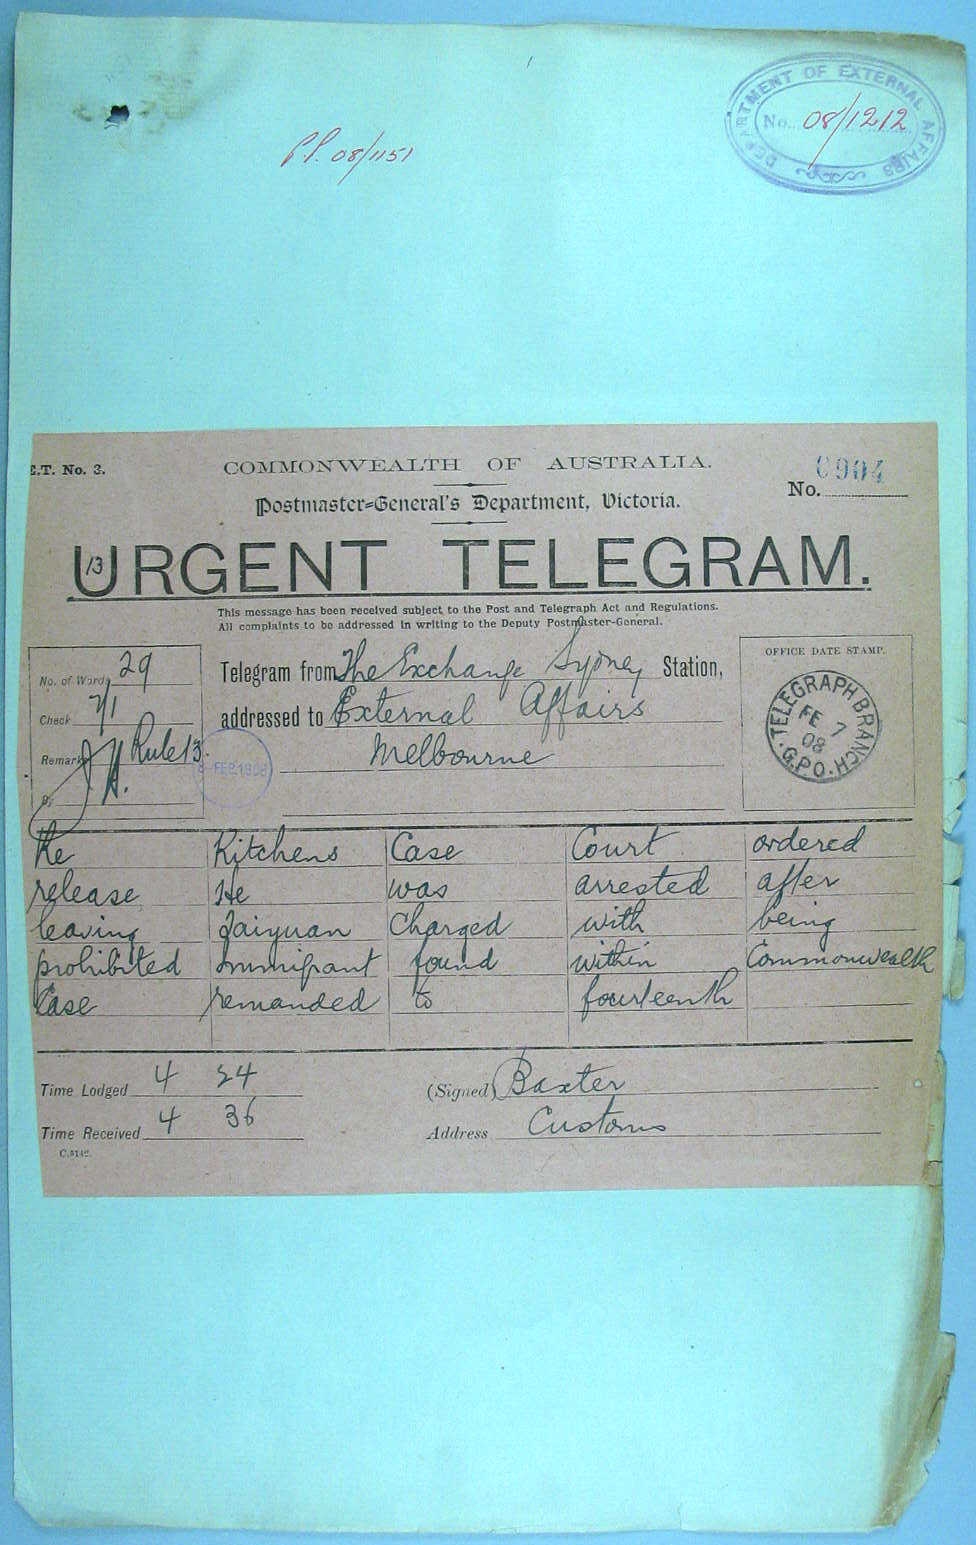 DEPARTMENT OF EXTERNAL AFFAIRS
No. 08/1212
P.P. 08/1151
E.T. No. 3.
COMMONWEALTH OF AUSTRALIA.
No. 0904
Postmaster-General's Department, Victoria.
13
URGENT TELEGRAM.
This message has been received subject to the Post and Telegraph Act and Regulations.
All complaints to be addressed in writing to the Deputy Postmaster-General.
No. of Words 29
Check 7/1
Remarks Rule 13.
By
Telegram from The Exchange Sydney Station,
addressed to External Affairs
Melbourne
FEB 1908
OFFICE DATE STAMP.
TELEGRAPH BRANCH
FE 7
08
G.P.O.
the Kitchens Case Court ordered
release He was arrested after
leaving charged with being
prohibited Immigrant found within Commonwealth
Case remanded to fourteenth
Time Lodged 4 24
Time Received 4 36
C.5142.
(Signed) Baxter
Address Customs